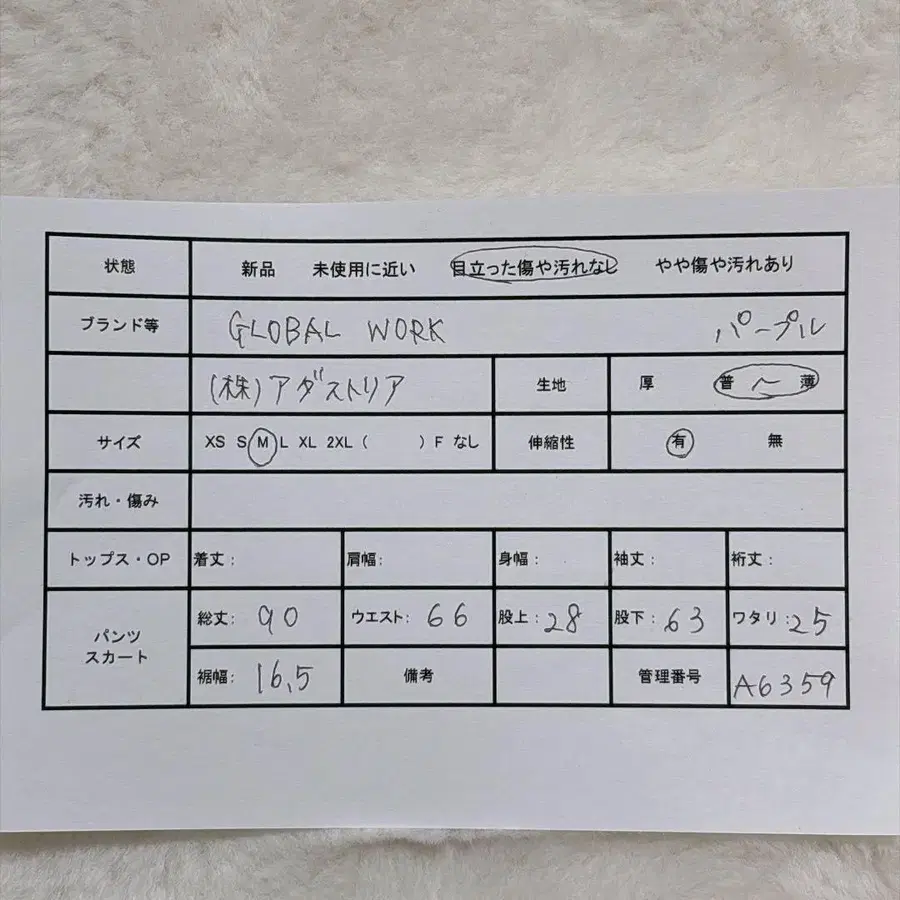 状態 新品 未使用に近い 目立った傷や汚れなし やや傷や汚れあり
ブランド等 GLOBAL WORK パープル
(株)アダストリア 生地 厚 普 〜 薄
サイズ XS S M L XL 2XL ( ) F なし 伸縮性 有 無
汚れ・傷み
トップス・OP 着丈: 肩幅: 身幅: 袖丈: 裄丈:
パンツ スカート 総丈: 90 ウエスト: 66 股上: 28 股下: 63 ワタリ: 25
裾幅: 16.5 備考 管理番号 A6359